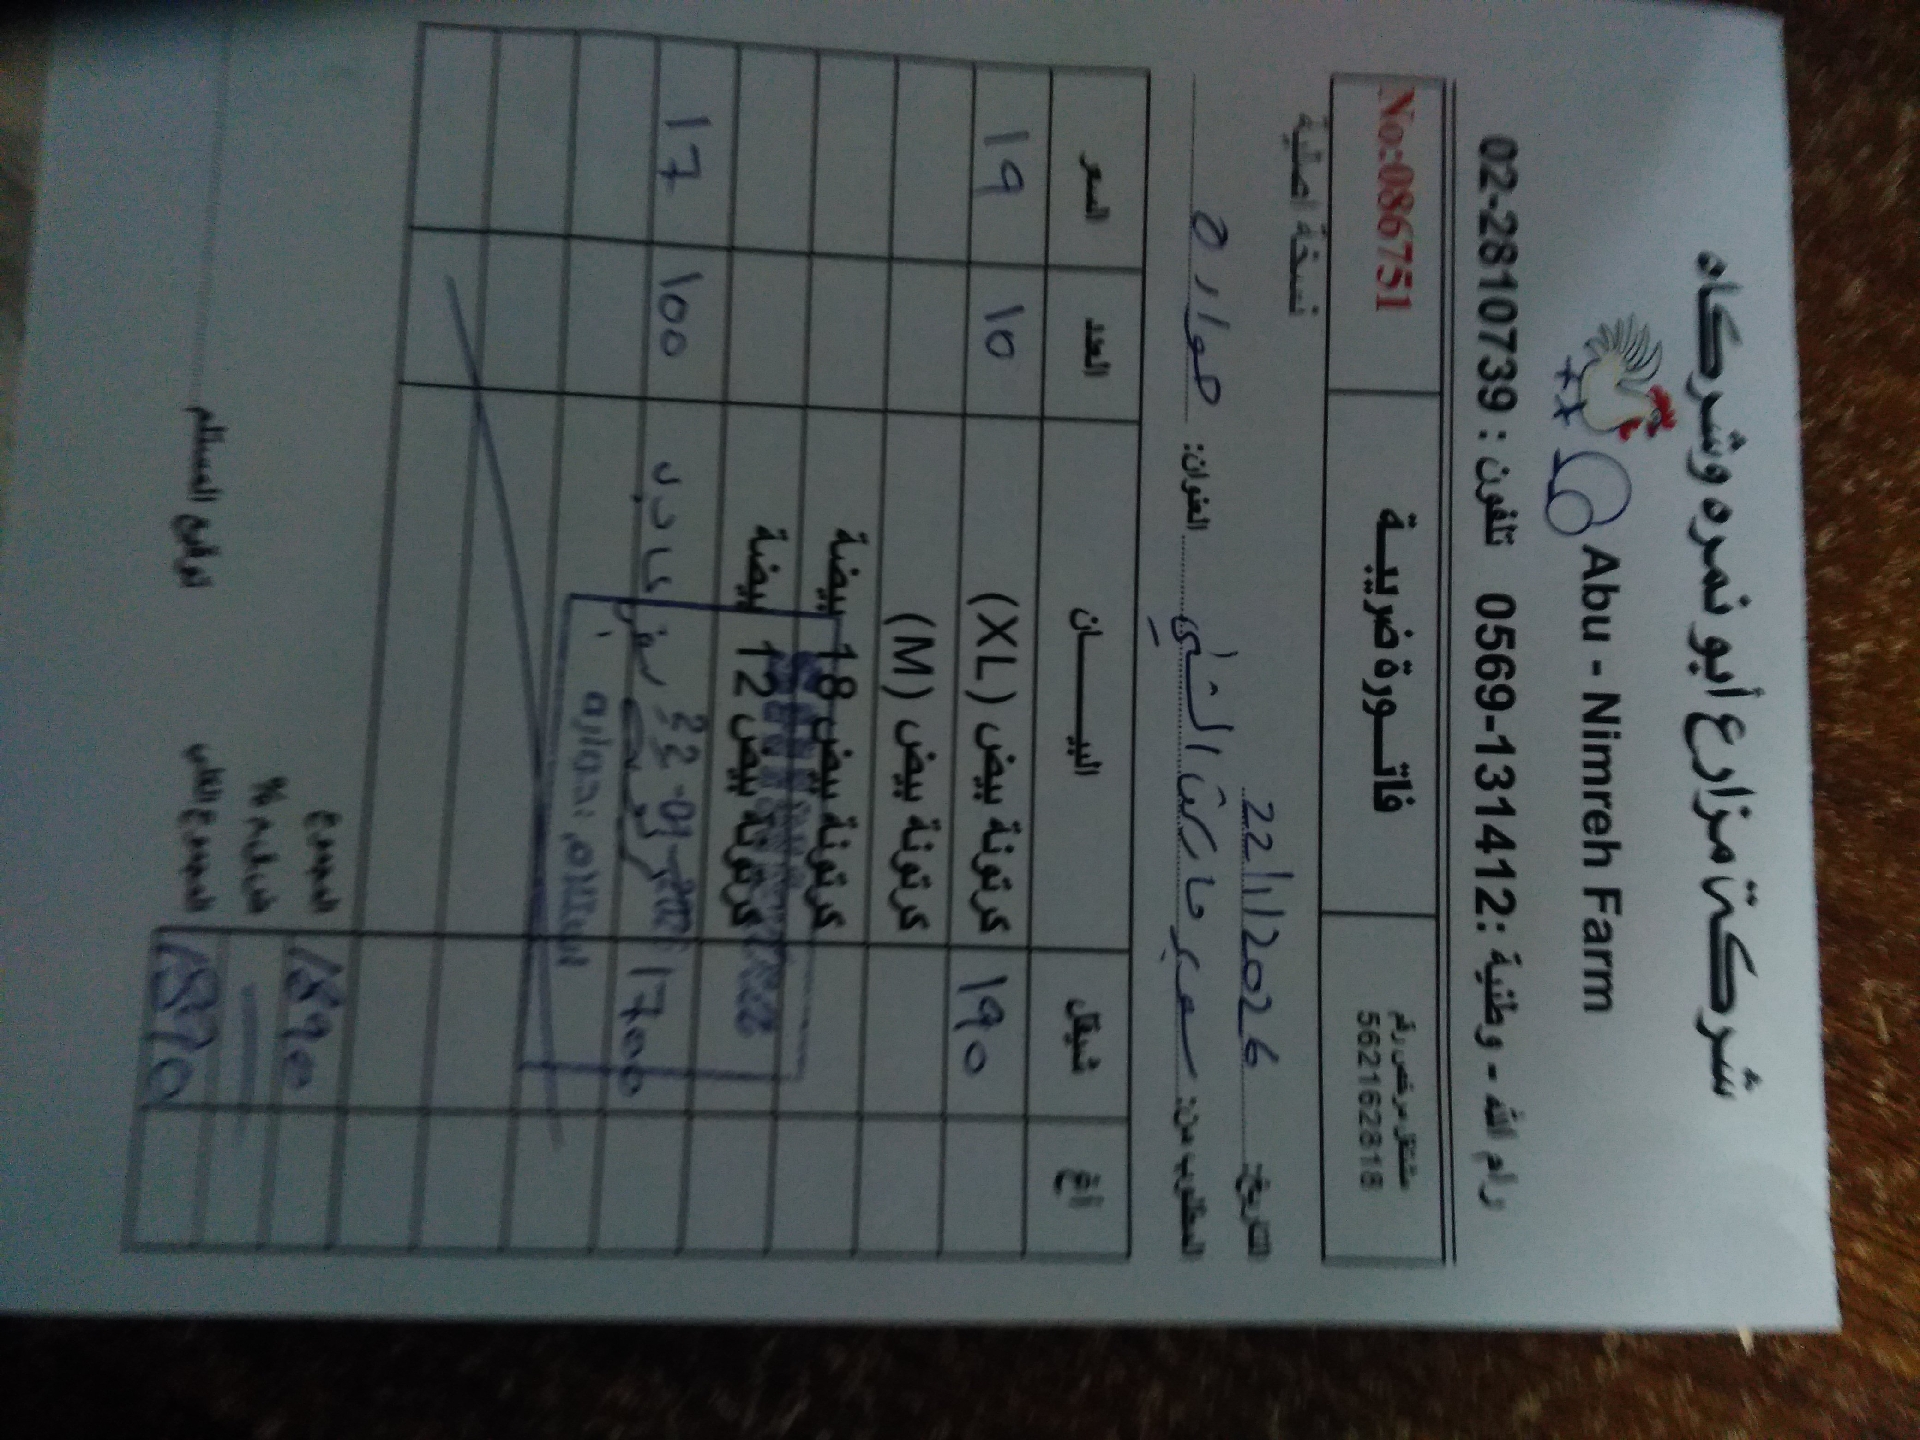 شركة مزارع أبو نمره وشركاه
Abu - Nimreh Farm
رام الله - وطنية : 0569-131412 تلفون : 02-2810739
مشتغل مرخص رقم 562162818
فاتورة ضريبية
No:086751
نسخة اصلية
التاريخ: 22/1/2026
المطلوب من: سوبر ماركت الشني العنوان: هواره
اغ شيقل البيان العدد السعر
190 كرتونة بيض (XL) 10 19
كرتونة بيض (M)
كرتونة بيض 18 بيضة
كرتونة بيض 12 بيضة
1700 100 17
22-01-
استلام بضاعة
المجموع 1890
ض.ق.م %
المجموع الكلي 1890
توقيع المستلم